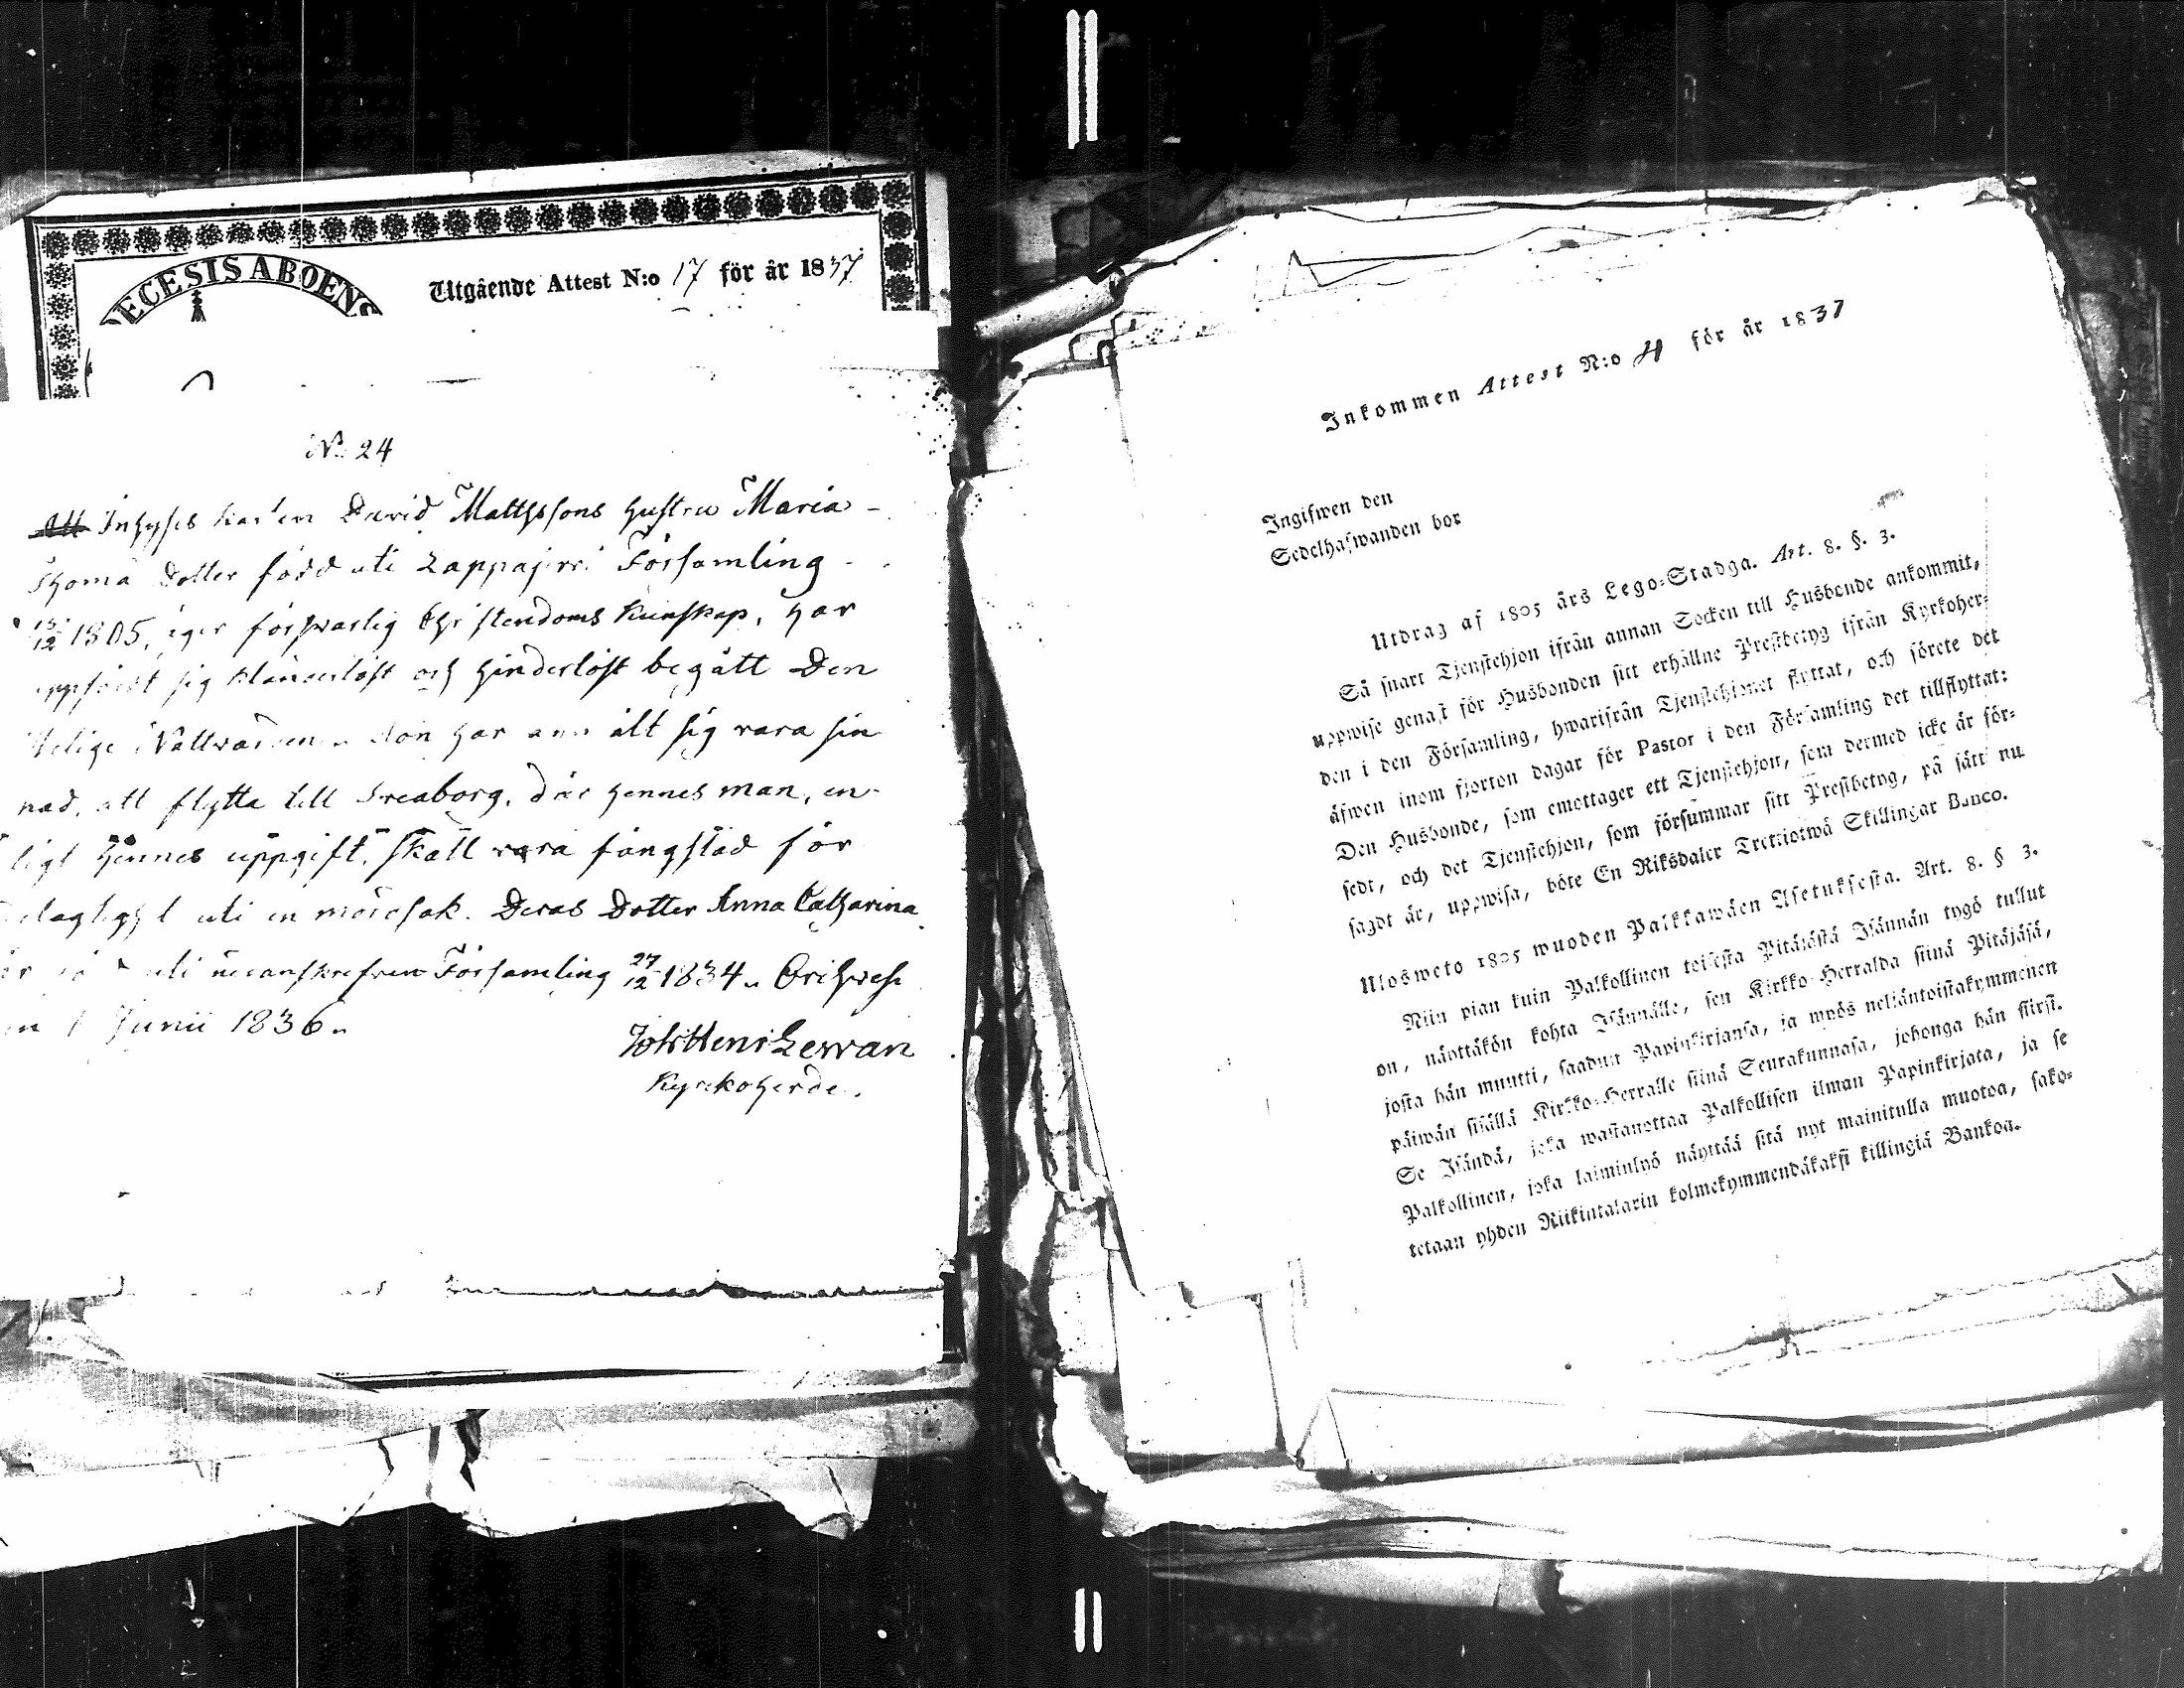 ECESIS ABOENS
Utgående Attest N:o 17 för år 1837
No 24
Att Inhyses karlen David Mathssons hustru Maria
Thoma dotter född uti Lappajervi Församling
15/12 1805, eger försvarlig Christendoms kunskap, har
uppfördt sig klanderlöst och hinderlöst begått Den
Helige Nattvarden. Hon har anmält sig vara sin
nad, att flytta till Sveaborg, där hennes man, en-
ligt hennes uppgift, skall vara fångstad för
delagtighet uti en mordsak. Deras Dotter Anna Catharina
är född uti ofvanskrefven Församling 27/12 1834. Orihvesi
en 1 Junii 1836.
Kyrkoherde.
Inkommen Attest N:o 4 för år 1837
Ingifwen den
Sedelhafwanden bor
Utdrag af 1805 års Lego-Stadga. Art. 8. §. 3.
Så snart Tjenstehjon ifrån annan Socken till Husbonde ankommit,
uppwise genast för Husbonden sitt erhållne Prestbetyg ifrån Kyrkoher-
den i den Församling, hwarifrån Tjenstehjonet flyttat, och förete det
äfwen inom fjorton dagar för Pastor i den Församling det tillflyttat:
Den Husbonde, som emottager ett Tjenstehjon, som dermed icke är för-
sedt, och det Tjenstehjon, som försummar sitt Prestbetyg, på sätt nu
sagdt är, uppwisa, böte En Riksdaler Trettiotwå Skillingar Banco.
Ulosweto 1805 wuoden Palkkawäen Asetuksesta. Art. 8. § 3.
Niin pian kuin Palkollinen toisesta Pitäjästä Isännän tygö tullut
on, näyttäkön kohta Isännälle, sen Kirkko-Herralda siinä Pitäjäsä,
josta hän muutti, saadun Papinkirjansa, ja myös neljäntoistakymmenen
päiwän sisällä Kirkko-Herralle siinä Seurakunnasa, johonga hän siirsi.
Se Isändä, joka wastanottaa Palkollisen ilman Papinkirjata, ja se
Palkollinen, joka laiminlyö näyttää sitä nyt mainitulla muotoa, sako-
tetaan yhden Riikintalarin kolmekymmendäkaksi killingiä Bankoa.